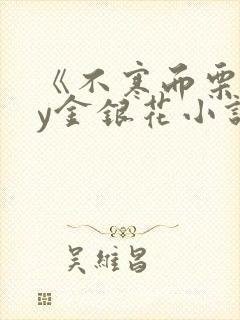 《不寒而栗
y金银花小説
吴維昌